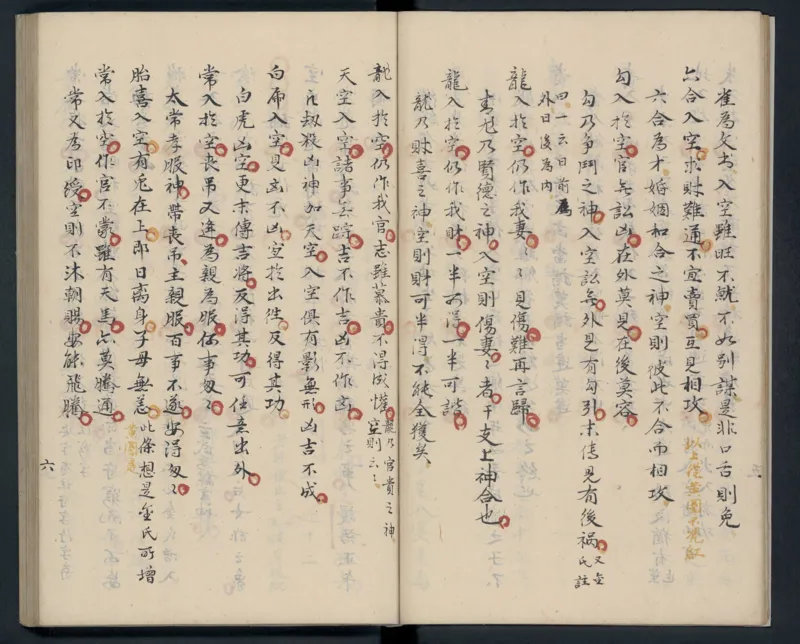 雀為父书入空雖旺不就不如别謀是非口舌則免
六合入空求財難通不宜賣買互見相攻
六合為才婚姻和合之神空則彼此不合而相攻
勾入於空官無訟凶在外莫見在後莫容
勾乃争鬥之神入空訟無外見有勾引末傳見有後禍
又金氏註
四一云日前為外日後為内
龍入於空仍作我妻妻見傷難再言歸
青龙乃賢德之神入空則傷妻妻者干支上神合也
龍入於空仍作我財一半可得一半可諧
龍乃財喜之神空則財可半得不能全獲矣
龍入於空仍作我官志雖慕貴不得成懽
龍乃官貴之神空則云云
天空入空諸事無踪吉不作吉凶不作凶
乃刼殺凶神如天空入空俱有影無形凶吉不成
白虎入空見凶不凶宜於出往反得其功
白虎凶空更末傳吉將反得其功可任意出外
常入於空喪吊又逢為親為服作事匆匆
太常孝服神帶喪吊主親服百事不遂安得匆匆
胎喜入空有鬼在上即日离身子母無恙
此條想是金氏所增
常入於空作官不蒙雖有天馬亦莫騰通
常又為印綬空則不沐朝賜安能飛騰
六